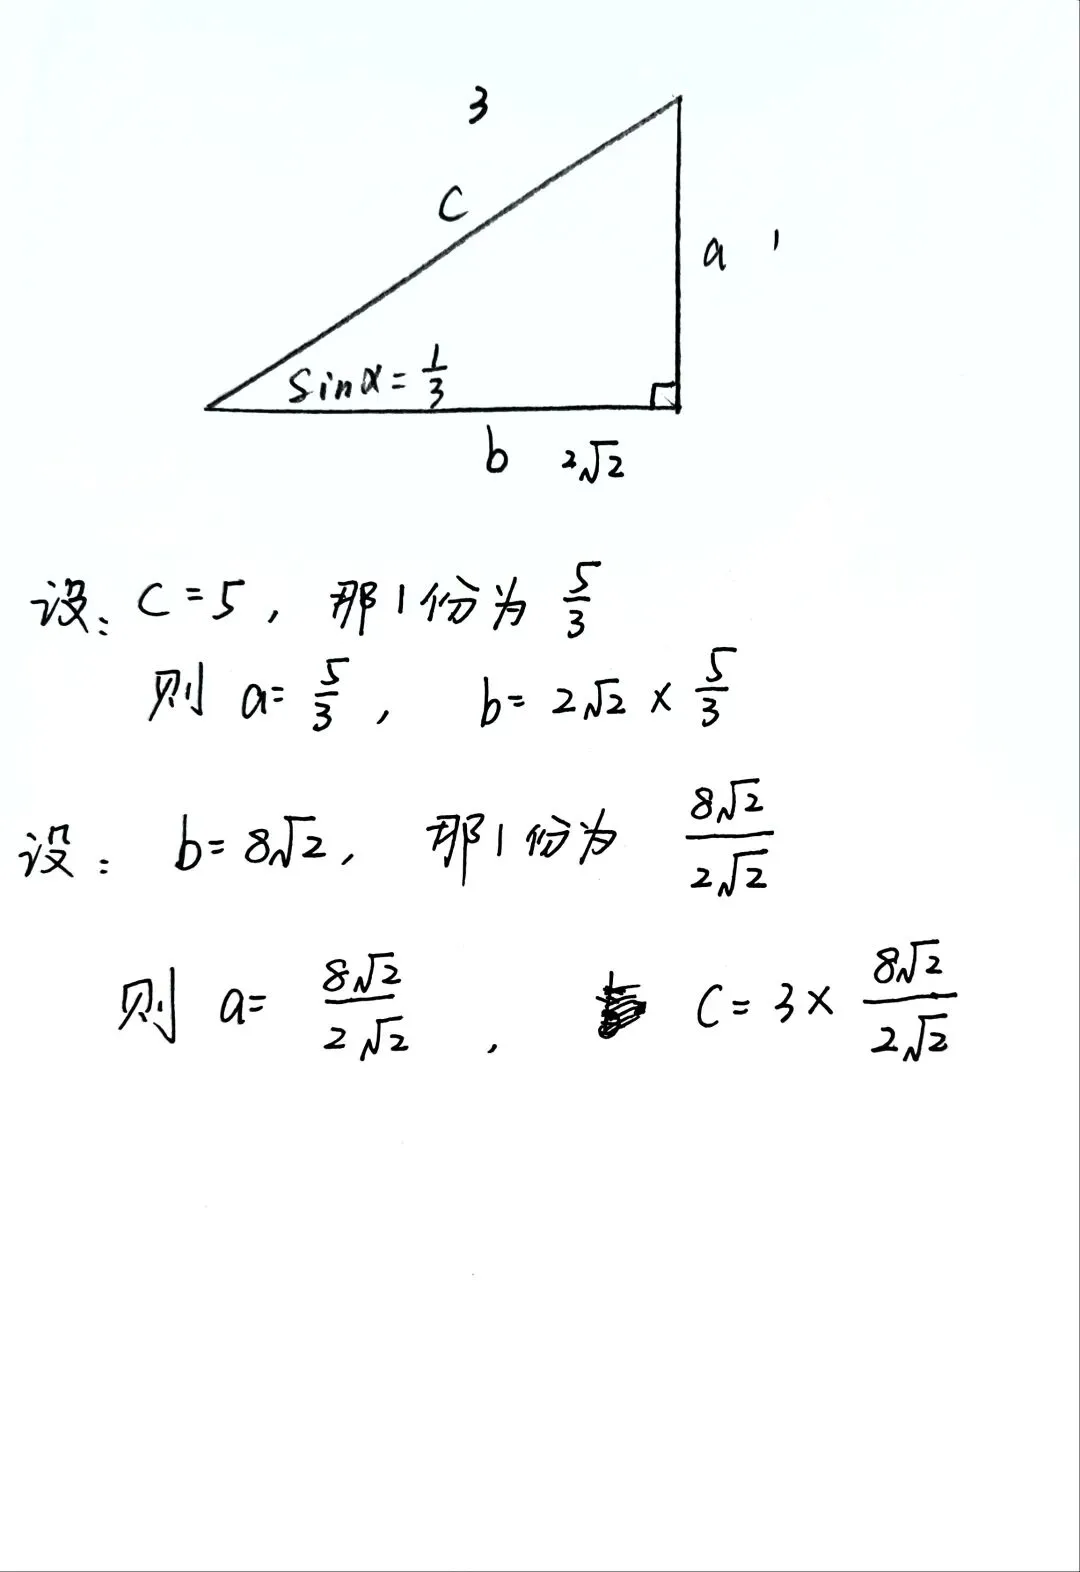 3
c
a 1
sinα = 1/3
b 2√2
设: c = 5, 那1份为 5/3
则 a = 5/3, b = 2√2 × 5/3
设: b = 8√2, 那1份为 8√2/2√2
则 a = 8√2/2√2, c = 3 × 8√2/2√2